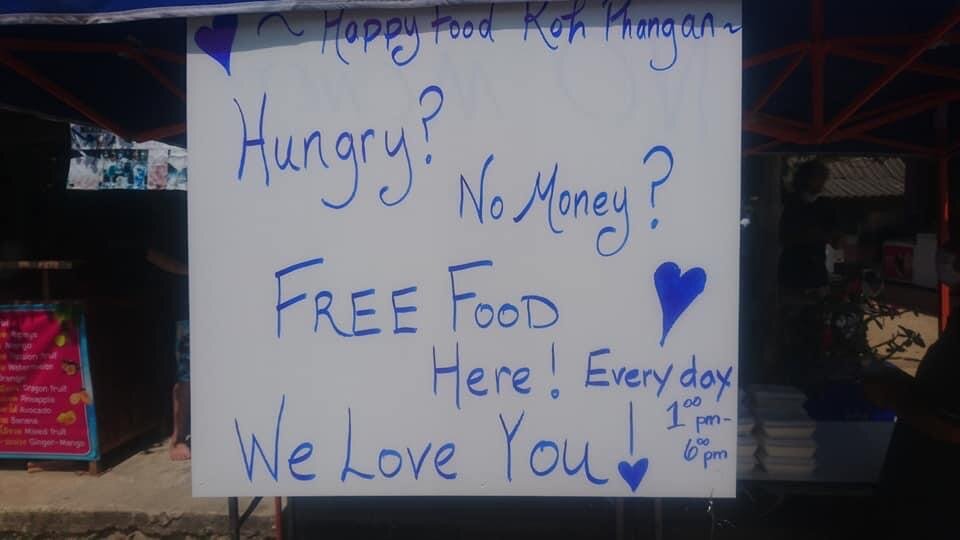 ~ Happy Food Koh Phangan ~
Hungry?
No Money?
FREE FOOD
Here! Everyday
1:00 pm-
6:00 pm
We Love You!
Mango
Passion fruit
Watermelon
Orange
Dragon fruit
Pineapple
Avocado
Banana
Mixed fruit
Ginger-Mango